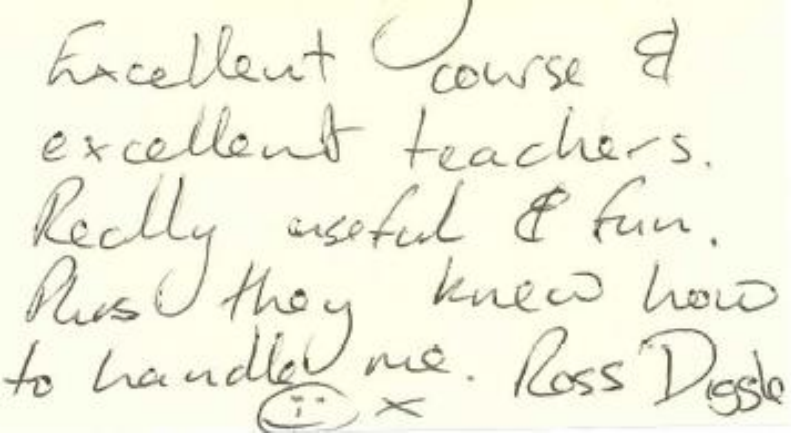 Excellent course &
excellent teachers.
Really useful & fun.
Plus they knew how
to handle me. Ross Diggle
☺ x